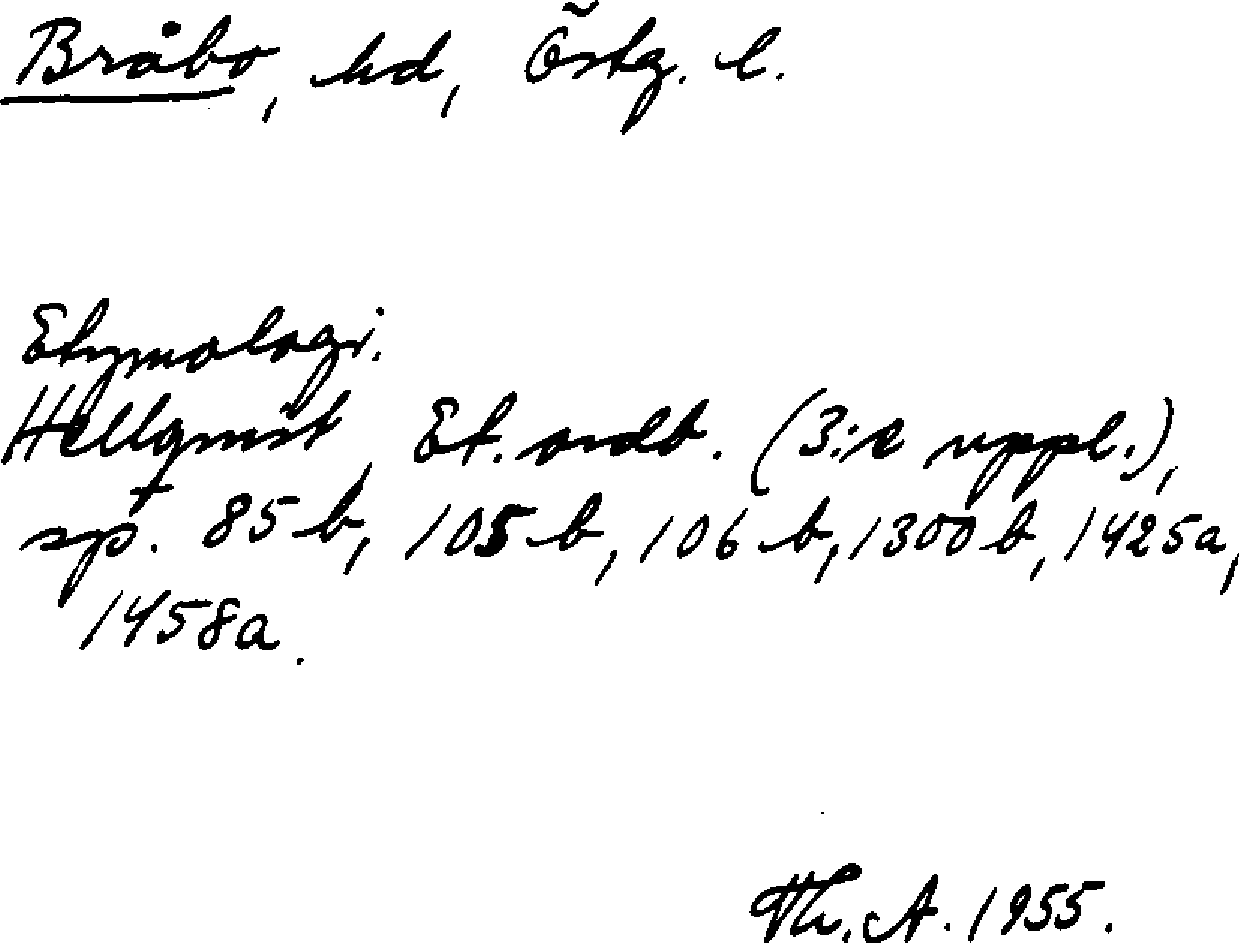 Bråbo, hd, Östg. l.
Etymologi.
Hellquist, Et. ordb. (3:e uppl.),
sp. 85 b, 105 b, 106 b, 1300 b, 1425a,
1458a.
Th. A. 1955.